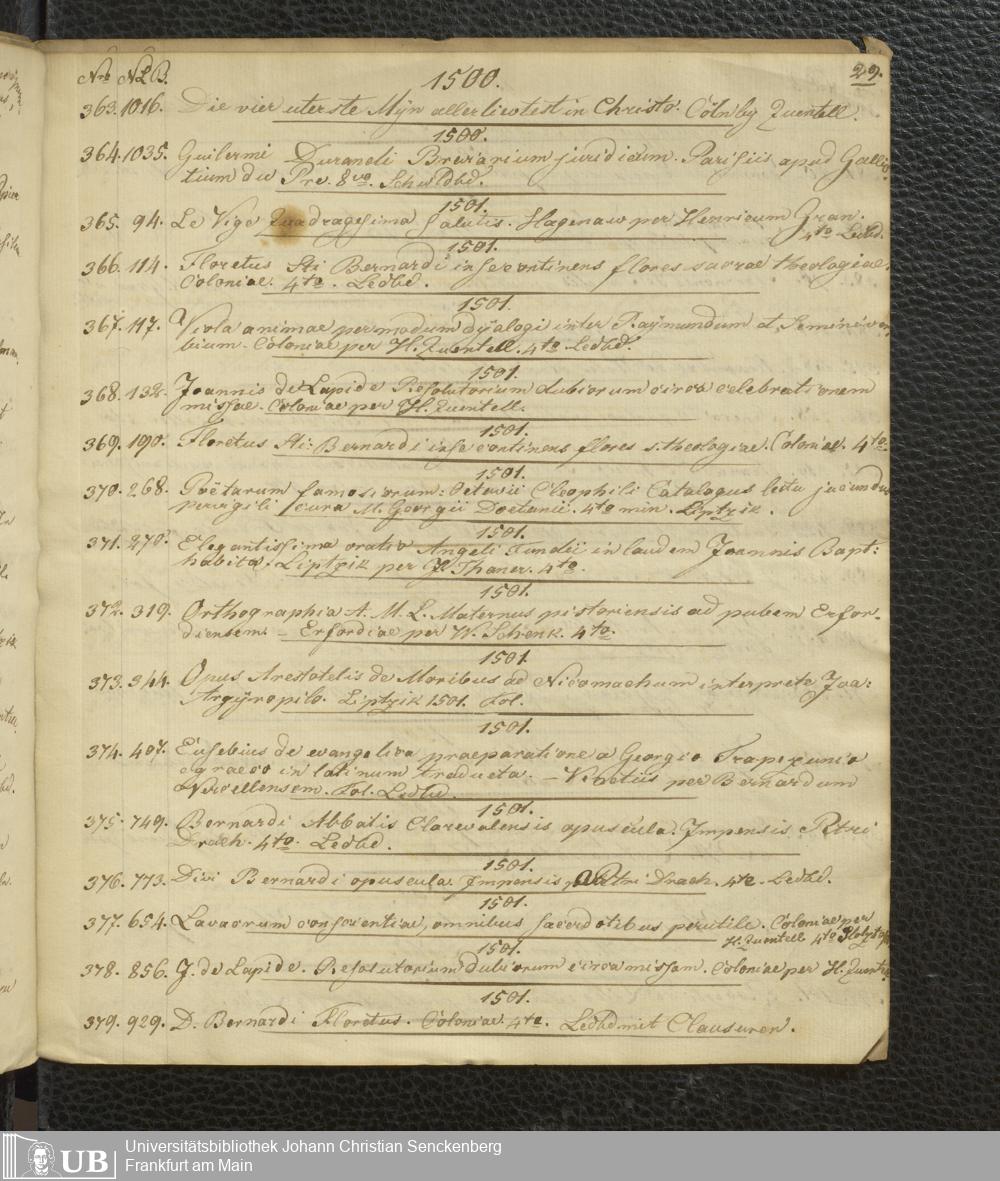 Nro NLB. 1500. 29.
363. 1016. Die vier uterste Myn allerlievtest in Christo. Cöln by Quentell.
1500.
364. 1035. Guilermi Durandi Breviarium juridicum. Parisiis apud Gallio
tium du Pre. 8vo. Schwldbd.
1501.
365. 94. Le Vige Quadragesima Salutis. Hagenaw per Henricum Gran.
4to Ledbd.
1501.
366. 114. Floretus Sti Bernardi in se continens flores sacrae theologiae.
Coloniae. 4to. Ledbd.
1501.
367. 117. Viola animae per modum dyalogi inter Raymundum et
bium. Coloniae per H. Quentell. 4to Ledbd.
1501.
368. 132. Joannis de Lapide Resolutorium dubiorum circa celebrationem
missae. Coloniae per H. Quentell.
1501.
369. 190. Floretus Sti: Bernardi in se continens flores s. theologiae. Coloniae. 4to.
1501.
370. 268. Poëtarum famosiorum: Octavii Cleophili Catalogus lectu jucundus
pervigili cura M. Georgii Dottanii. 4to min. Liptzik.
1501.
371. 270. Elegantissima oratio Angeli Fundii in laudem Joannis Bapt:
habita. Liptzik per J. Thaner. 4to.
1501.
372. 319. Orthographia A. M. L. Maternus pistoriensis ad pubem Erfor-
diensem. – Erfordiae per W. Schenk. 4to.
1501.
373. 344. Opus Arestotelis de Moribus ad Nicomachum interprete Joa:
Argyropilo. Liptzik 1501. Fol.
1501.
374. 407. Eusebius de evangelica praeparatione a Georgio Trapezuntio
e graeco in latinum traducta. – Venetiis per Bernardum
Vercellensem. Fol. Ledbd.
1501.
375. 749. Bernardi Abbatis Clarevalensis opuscula. Impensis Petri
Drach. 4to. Ledbd.
1501.
376. 773. Divi Bernardi opuscula Impensis Petri Drach. 4to. Ledbd.
1501.
377. 654. Lavacrum conscientiae, omnibus sacerdotibus perutile. Coloniae per
H. Quentell 4to
1501.
378. 856. J. de Lapide. Resolutorium dubiorum circa missam. Coloniae per H. Quentel
1501.
379. 929. D. Bernardi Floretus. Coloniae. 4to. Ledbd mit Clausuren.
UB
Universitätsbibliothek Johann Christian Senckenberg
Frankfurt am Main